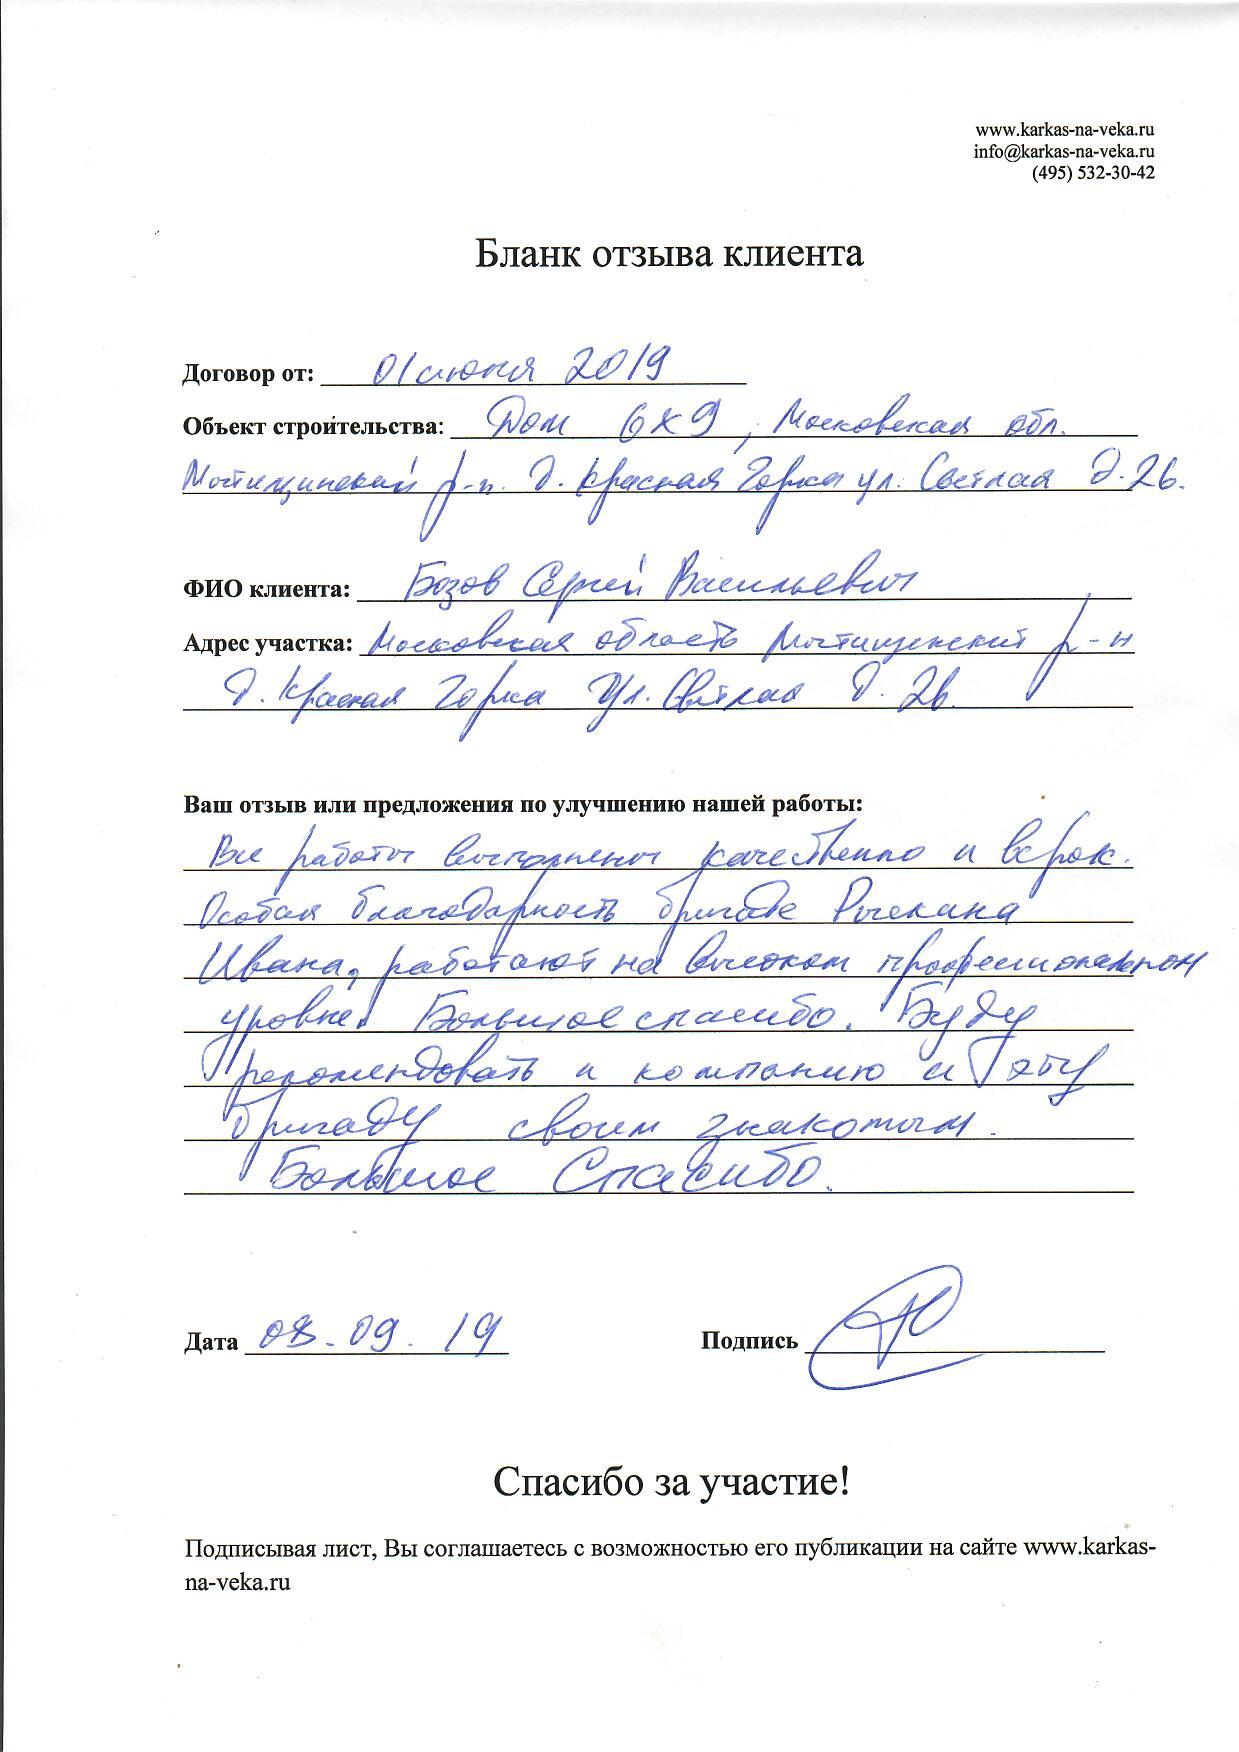 www.karkas-na-veka.ru
info@karkas-na-veka.ru
(495) 532-30-42
Бланк отзыва клиента
Договор от: 01 июня 2019
Объект строительства: Дом 6х9, Московская обл.
Мытищинский р-н. д. Красная Горка ул. Светлая д. 26.
ФИО клиента: Бозов Сергей Васильевич
Адрес участка: Московская область Мытищинский р-н
д. Красная Горка ул. Светлая д. 26.
Ваш отзыв или предложения по улучшению нашей работы:
Все работы выполнены качественно и в срок.
Особая благодарность бригаде
Ивана, работают на высоком профессиональном
уровне. Большое спасибо. Буду
рекомендовать и компанию и эту
бригаду своим знакомым.
Большое Спасибо.
Дата 08.09.19 Подпись
Спасибо за участие!
Подписывая лист, Вы соглашаетесь с возможностью его публикации на сайте www.karkas-
na-veka.ru